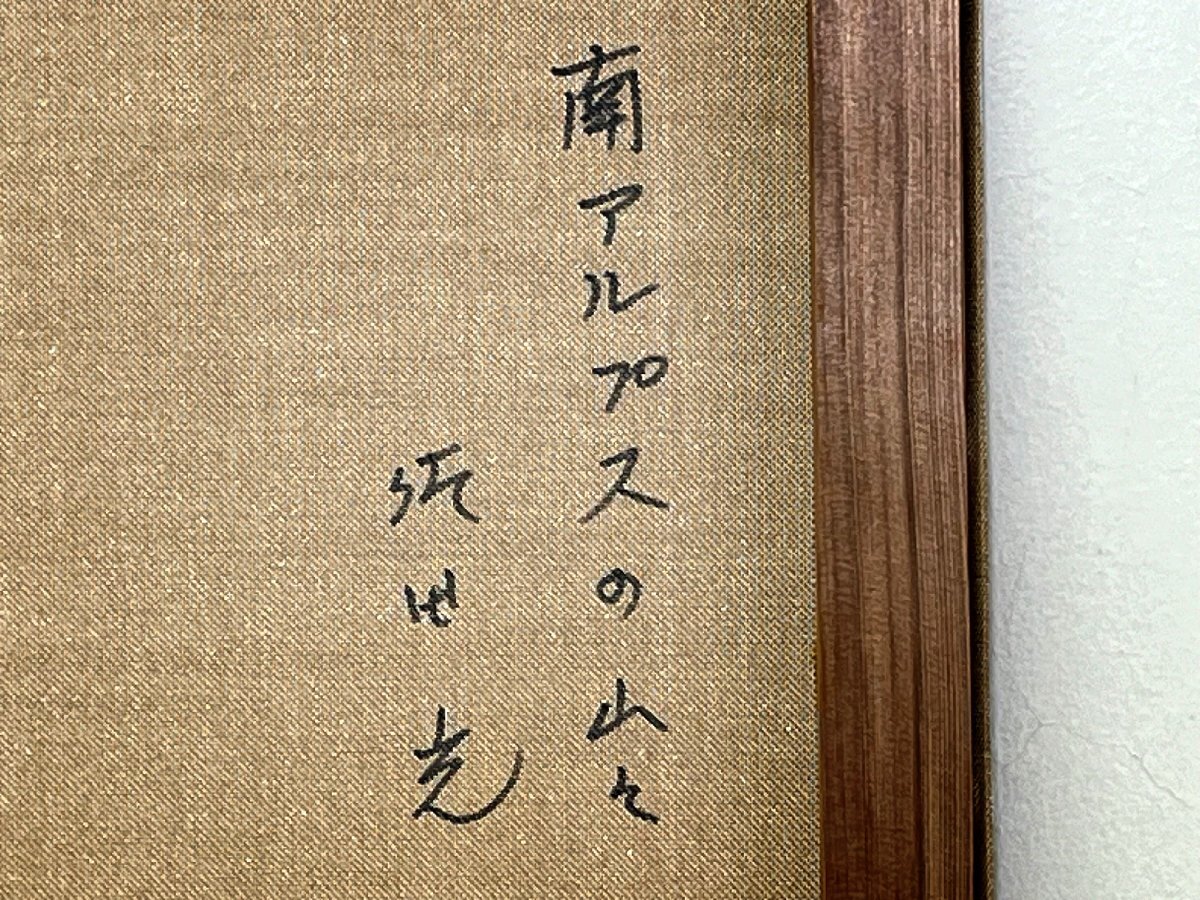 南アルプスの山々
光